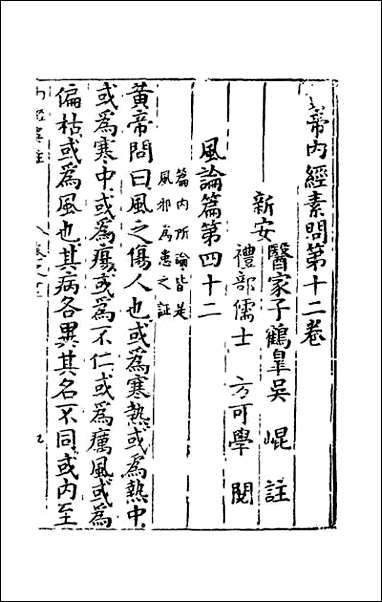 帝內經素問第十二卷
新安醫家子鶴臯吳崐註
禮部儒士方可學閱
風論篇第四十二
篇内所論皆是
風邪爲患之証
黃帝問曰風之傷人也或爲寒熱或爲熱中
或爲寒中或爲癘或爲不仁或爲厲風或爲
偏枯或爲風也其病各異其名不同或内至